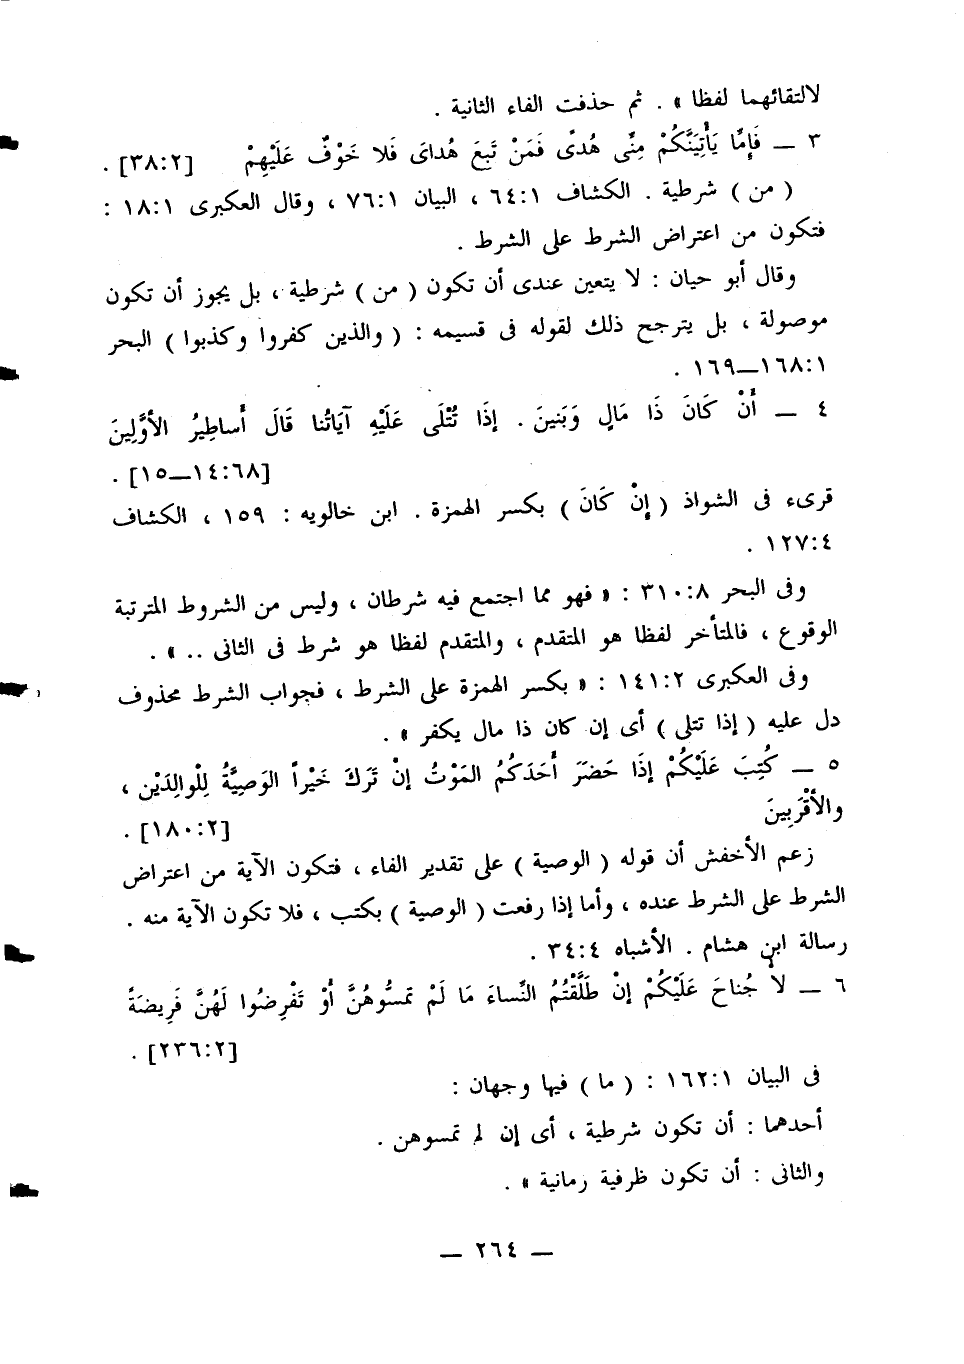 لالتقائهما لفظا » . ثم حذفت الفاء الثانية .
٣ — فَإِمَّا يَأْتِيَنَّكُمْ مِنِّى هُدىً فَمَنْ تَبِعَ هُداىَ فَلا خَوْفٌ عَلَيْهِمْ [٣٨:٢] .
( من ) شرطية . الكشاف ٦٤:١ ، البيان ٧٦:١ ، وقال العكبرى ١٨:١ :
فتكون من اعتراض الشرط على الشرط .
وقال أبو حيان : لا يتعين عندى أن تكون ( من ) شرطية ، بل يجوز أن تكون
موصولة ، بل يترجح ذلك لقوله فى قسيمه : ( والذين كفروا وكذبوا ) البحر
١٦٨:١—١٦٩ .
٤ — أَنْ كَانَ ذَا مَالٍ وَبَنينَ . إذَا تُتْلَى عَلَيْهِ آيَاتُنا قَالَ أَساطِيرُ الأوَّلِينَ
[١٤:٦٨—١٥] .
قرىء فى الشواذ ( إِنْ كَانَ ) بكسر الهمزة . ابن خالويه : ١٥٩ ، الكشاف
١٢٧:٤ .
وفى البحر ٣١٠:٨ : « فهو مما اجتمع فيه شرطان ، وليس من الشروط المترتبة
الوقوع ، فالمتأخر لفظا هو المتقدم ، والمتقدم لفظا هو شرط فى الثانى .. » .
وفى العكبرى ١٤١:٢ : « بكسر الهمزة على الشرط ، فجواب الشرط محذوف
دل عليه ( إذا تتلى ) أى إن كان ذا مال يكفر » .
٥ — كُتِبَ عَلَيْكُمْ إذَا حَضَرَ أَحَدَكُمُ المَوْتُ إنْ تَرَكَ خَيْراً الوَصِيَّةُ لِلْوالِدَيْن ،
والأقْرَبِينَ [١٨٠:٢] .
زعم الأخفش أن قوله ( الوصية ) على تقدير الفاء ، فتكون الآية من اعتراض
الشرط على الشرط عنده ، وأما إذا رفعت ( الوصية ) بكتب ، فلا تكون الآية منه .
رسالة ابن هشام . الأشباه ٣٤:٤ .
٦ — لاْ جُناحَ عَلَيْكُمْ إنْ طَلَّقْتُمُ النِّساءَ مَا لَمْ تمسُّوهُنَّ أوْ تَفْرِضُوا لَهُنَّ فَرِيضَةً
[٢٣٦:٢] .
فى البيان ١٦٢:١ : ( ما ) فيها وجهان :
أحدهما : أن تكون شرطية ، أى إن لم تمسوهن .
والثانى : أن تكون ظرفية زمانية » .
— ٢٦٤ —